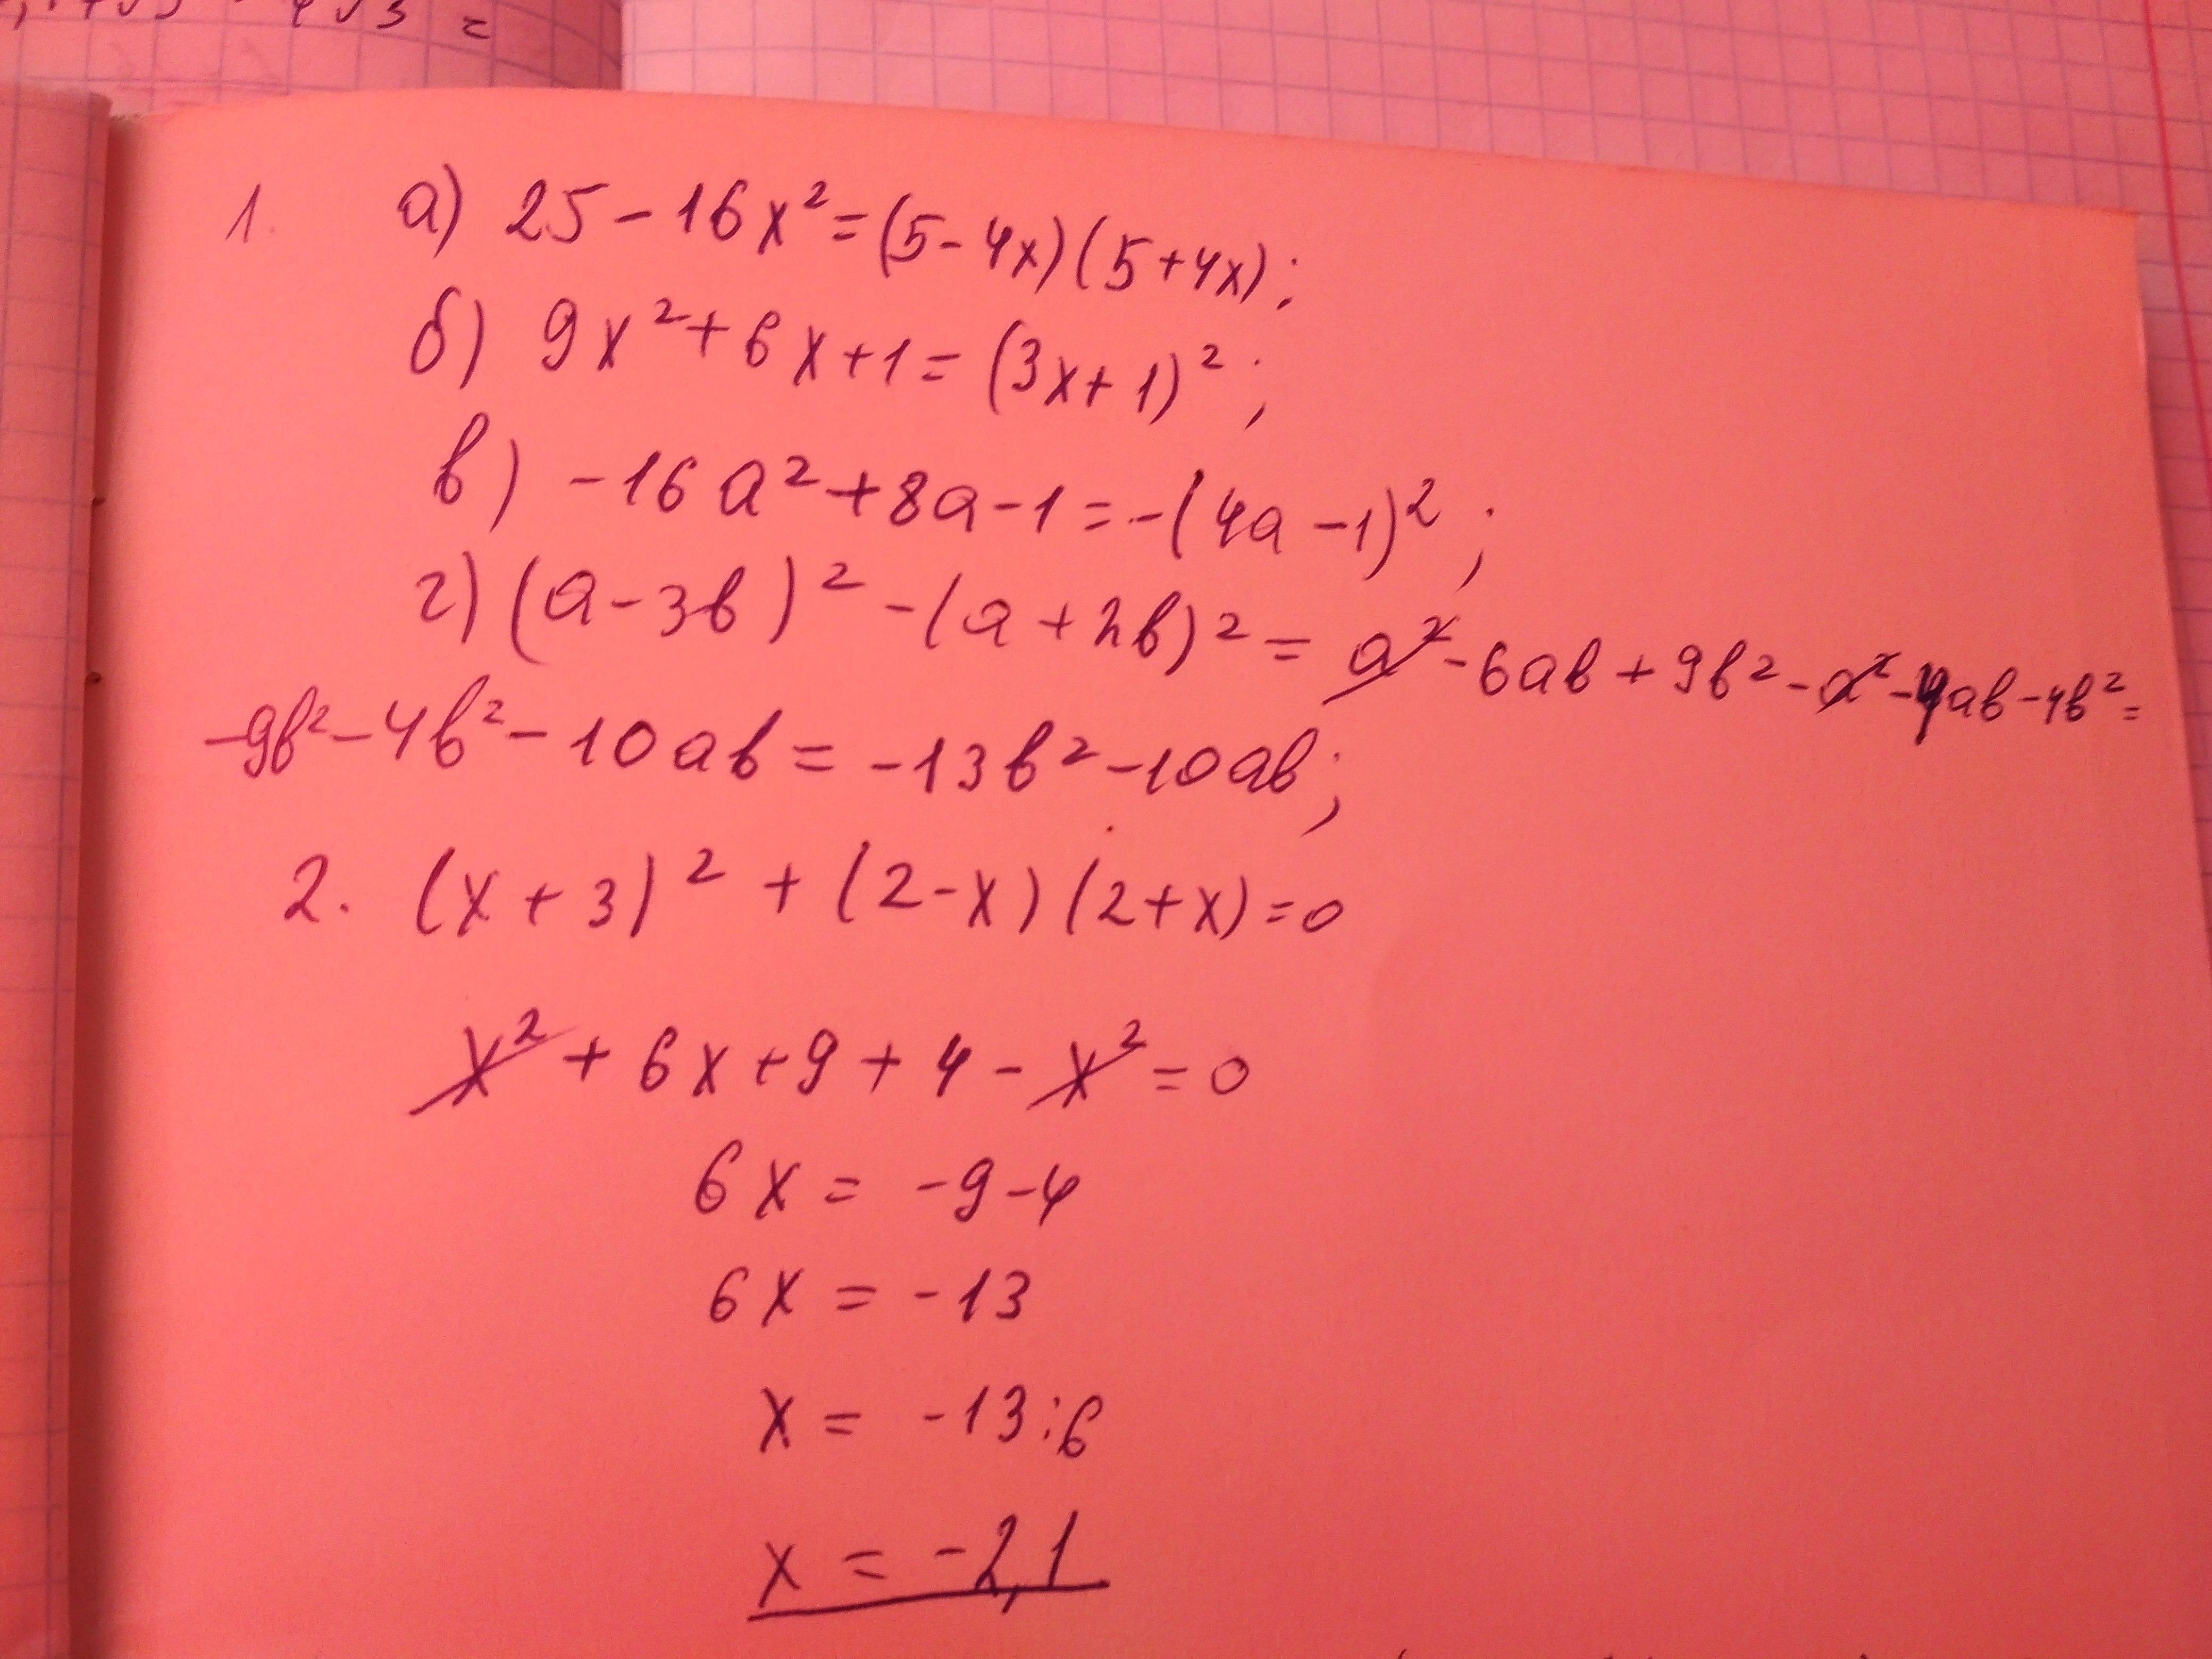 1. а) 25 - 16x² = (5 - 4x)(5 + 4x);
б) 9x² + 6x + 1 = (3x + 1)²;
в) -16a² + 8a - 1 = -(4a - 1)²;
г) (a - 3b)² - (a + 2b)² = a² - 6ab + 9b² - a² - 4ab - 4b² =
-9b² - 4b² - 10ab = -13b² - 10ab;
2. (x + 3)² + (2 - x)(2 + x) = 0
x² + 6x + 9 + 4 - x² = 0
6x = -9 - 4
6x = -13
x = -13 : 6
x = -2,1